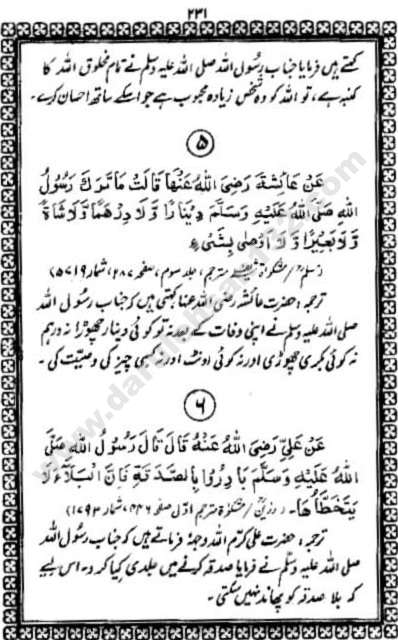 ۲۳۱
کہتے ہیں فرمایا جناب رسُول اللہ صلی اللہ علیہ وسلم نے تمام مخلوق اللہ کا
کنبہ ہے، تو اللہ کو وہ شخص زیادہ محبوب ہے جو اسکے ساتھ احسان کرے۔
۵
عَنْ عَائِشَةَ رَضِیَ اللهُ عَنْهَا قَالَتْ مَا تَرَكَ رَسُوْلُ
اللهِ صَلَّی اللهُ عَلَیْهِ وَسَلَّمَ دِیْنَارًا وَّلَا دِرْهَمًا وَّلَا شَاةً
وَّلَا بَعِیْرًا وَّلَا اَوْصٰی بِشَیْءٍ
(مسلم/مشکوٰۃ شریف مترجم، جلد سوم، صفحہ ۲۸۷، شمار ۵۷۱۹)
ترجمہ: حضرت عائشہ رضی اللہ عنہا کہتی ہیں کہ جناب رسُول اللہ
صلی اللہ علیہ وسلم نے اپنی وفات کے بعد نہ تو کوئی دینار چھوڑا نہ درہم
نہ کوئی بکری چھوڑی اور نہ کوئی اونٹ اور نہ کسی چیز کی وصیّت کی۔
۶
عَنْ عَلِیٍّ رَضِیَ اللهُ عَنْهُ قَالَ قَالَ رَسُوْلُ اللهِ صَلَّی
اللهُ عَلَیْهِ وَسَلَّمَ بَادِرُوْا بِالصَّدَقَةِ فَاِنَّ الْبَلَآءَ لَا
یَتَخَطَّاُهَا۔ (رزین/مشکوٰۃ مترجم اوّل صفحہ ۴۴۶، شمار ۱۷۹۳)
ترجمہ: حضرت علی کرّم اللہ وجہہٗ فرماتے ہیں کہ جناب رسُول اللہ
صلی اللہ علیہ وسلّم نے فرمایا صدقہ کرنے میں جلدی کیا کرو۔ اس لیے
کہ بلا صدقہ کو پھاند نہیں سکتی۔